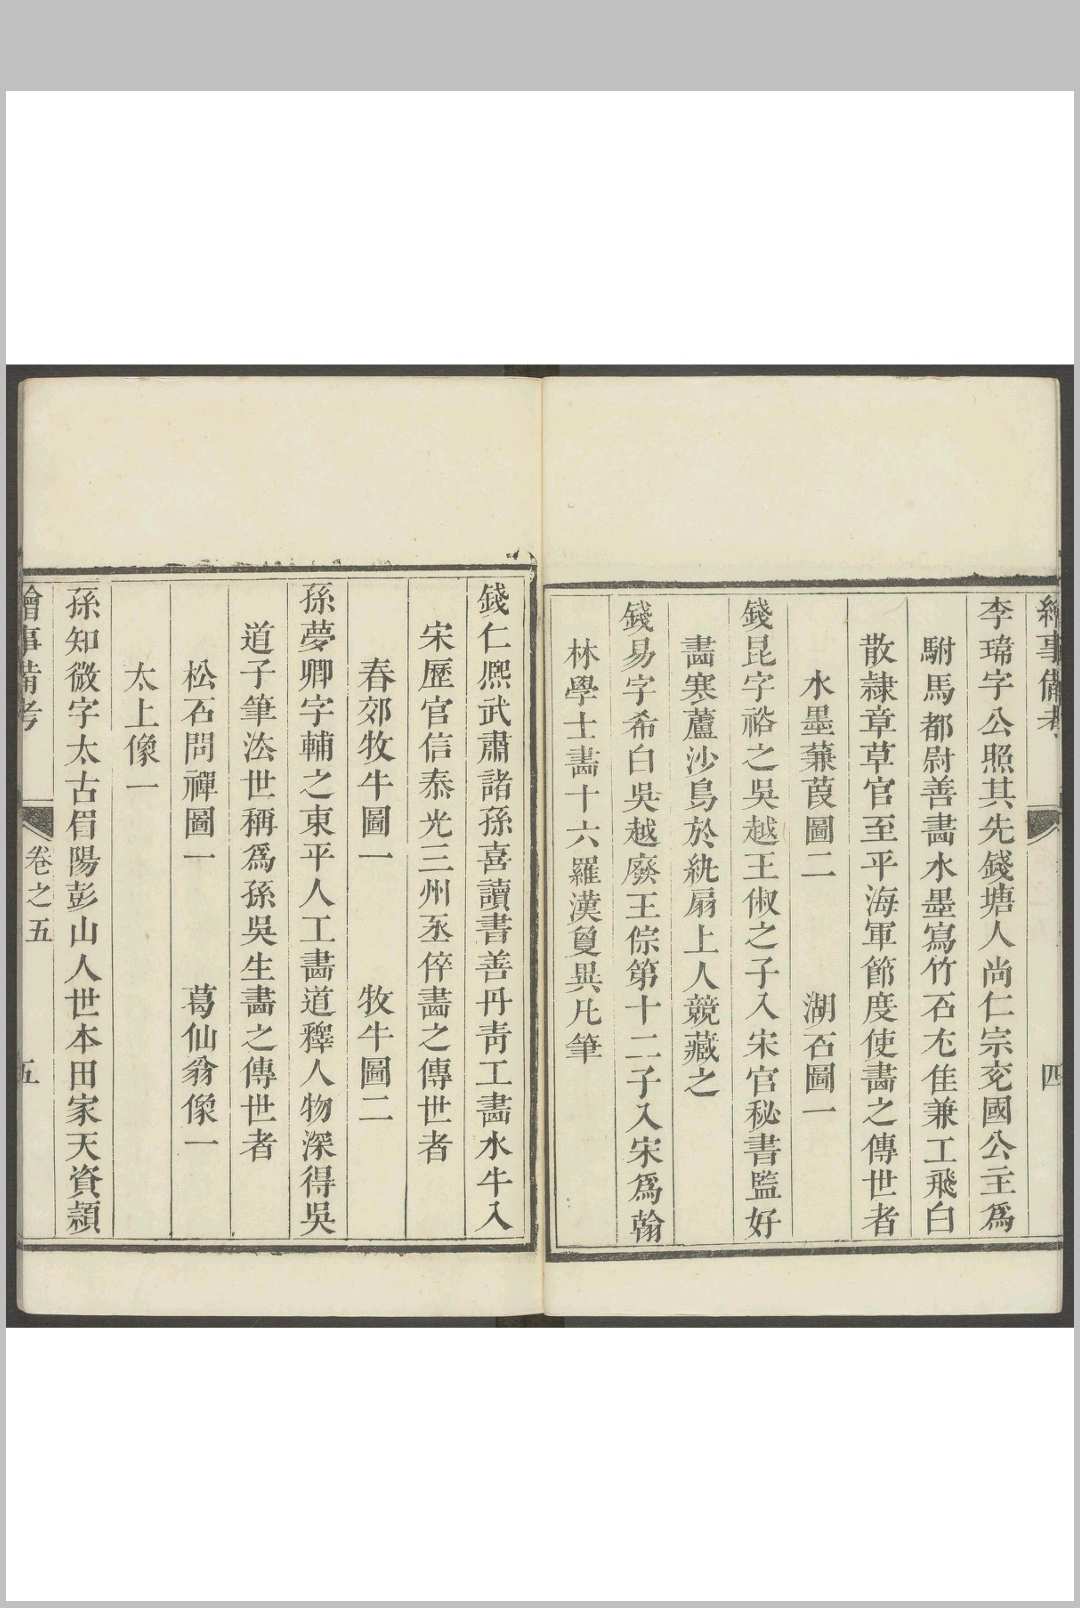 繪事備考
四
李瑋字公照其先錢塘人尚仁宗兗國公主爲
駙馬都尉善畵水墨寫竹石尤佳兼工飛白
散隸章草官至平海軍節度使畵之傳世者
水墨蒹葭圖二 湖石圖一
錢昆字裕之吳越王俶之子入宋官秘書監好
畵寒蘆沙鳥於紈扇上人競藏之
錢易字希白吳越廢王倧第十二子入宋爲翰
林學士畵十六羅漢夐異凡筆
錢仁熈武肅諸孫喜讀書善丹靑工畵水牛入
宋歷官信泰光三州丞倅畵之傳世者
春郊牧牛圖一 牧牛圖二
孫夢卿字輔之東平人工畵道釋人物深得吳
道子筆法世稱爲孫吳生畵之傳世者
松石問禪圖一 葛仙翁像一
太上像一
孫知微字太古眉陽彭山人世本田家天資頴
繪事備考 卷之五 五